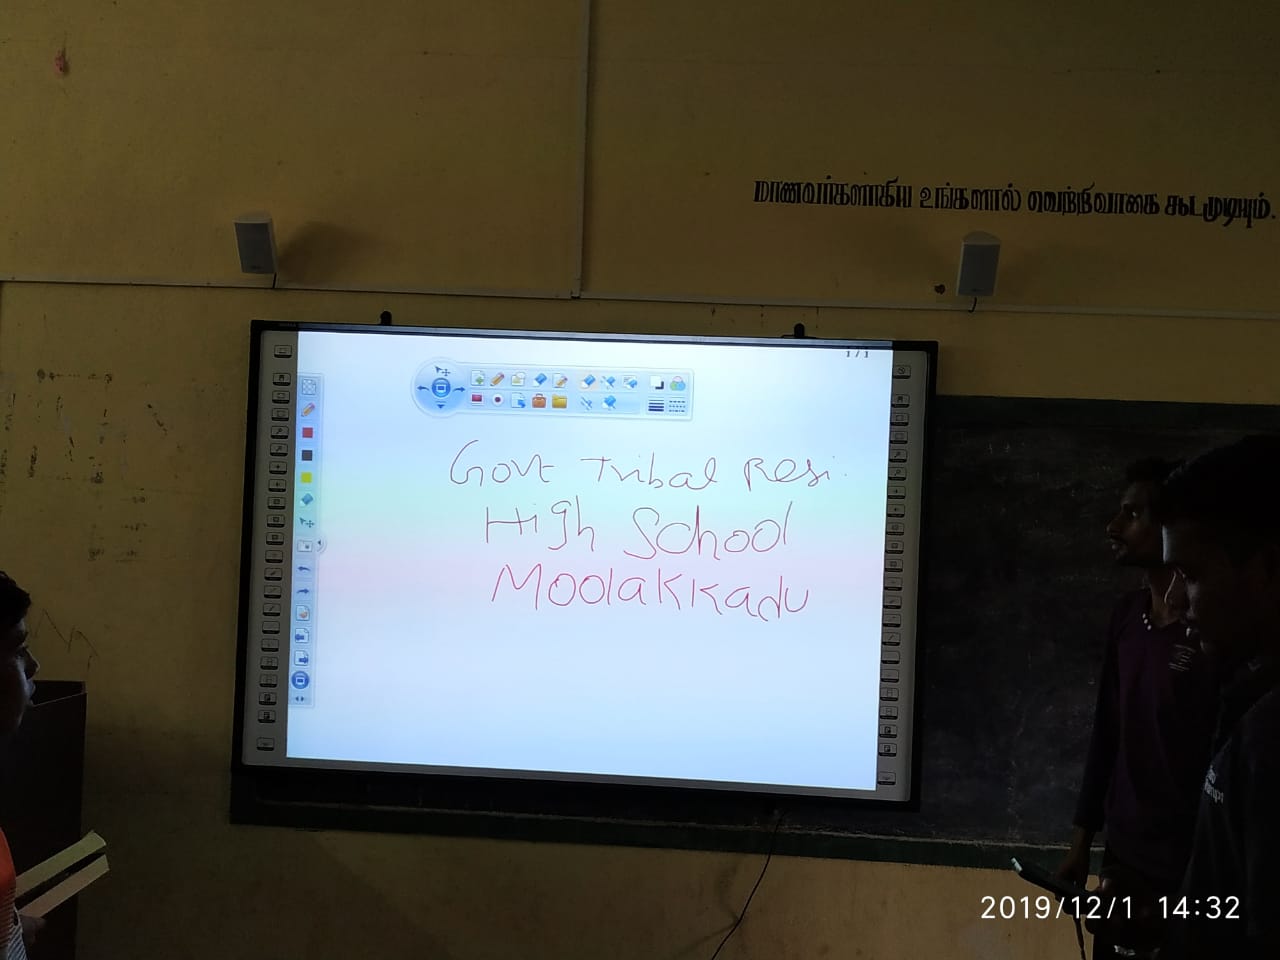 மாணவர்களாகிய உங்களால் வெற்றிவாகை கூடமுடியும்.
1 / 1
Govt Tribal Resi.
High School
Moolakkadu
2019/12/1 14:32